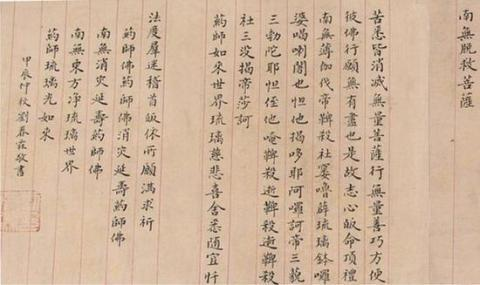 南無脫救菩薩
苦悉皆消滅無量菩薩行無量善巧方便
彼佛行願無有盡也是故志心皈命頂禮
南無薄伽伐帝鞞殺社窶嚕薜琉璃鉢囉
婆喝囉闍也怛他揭多耶阿囉訶帝三藐
三勃陀耶怛侄他唵鞞殺逝鞞殺逝鞞殺
社三沒揭帝莎訶
藥師如來世界琉璃慈悲喜舍悉隨宜忏
法度羣迷稽首皈依所願滿求祈
藥師佛藥師佛消灾延壽藥師佛
南無消灾延壽藥師佛
南無東方净琉璃世界
藥師琉璃光如來
甲辰仲秋劉春霖敬書